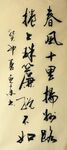 春風十里揚州路
捲上珠簾總不如